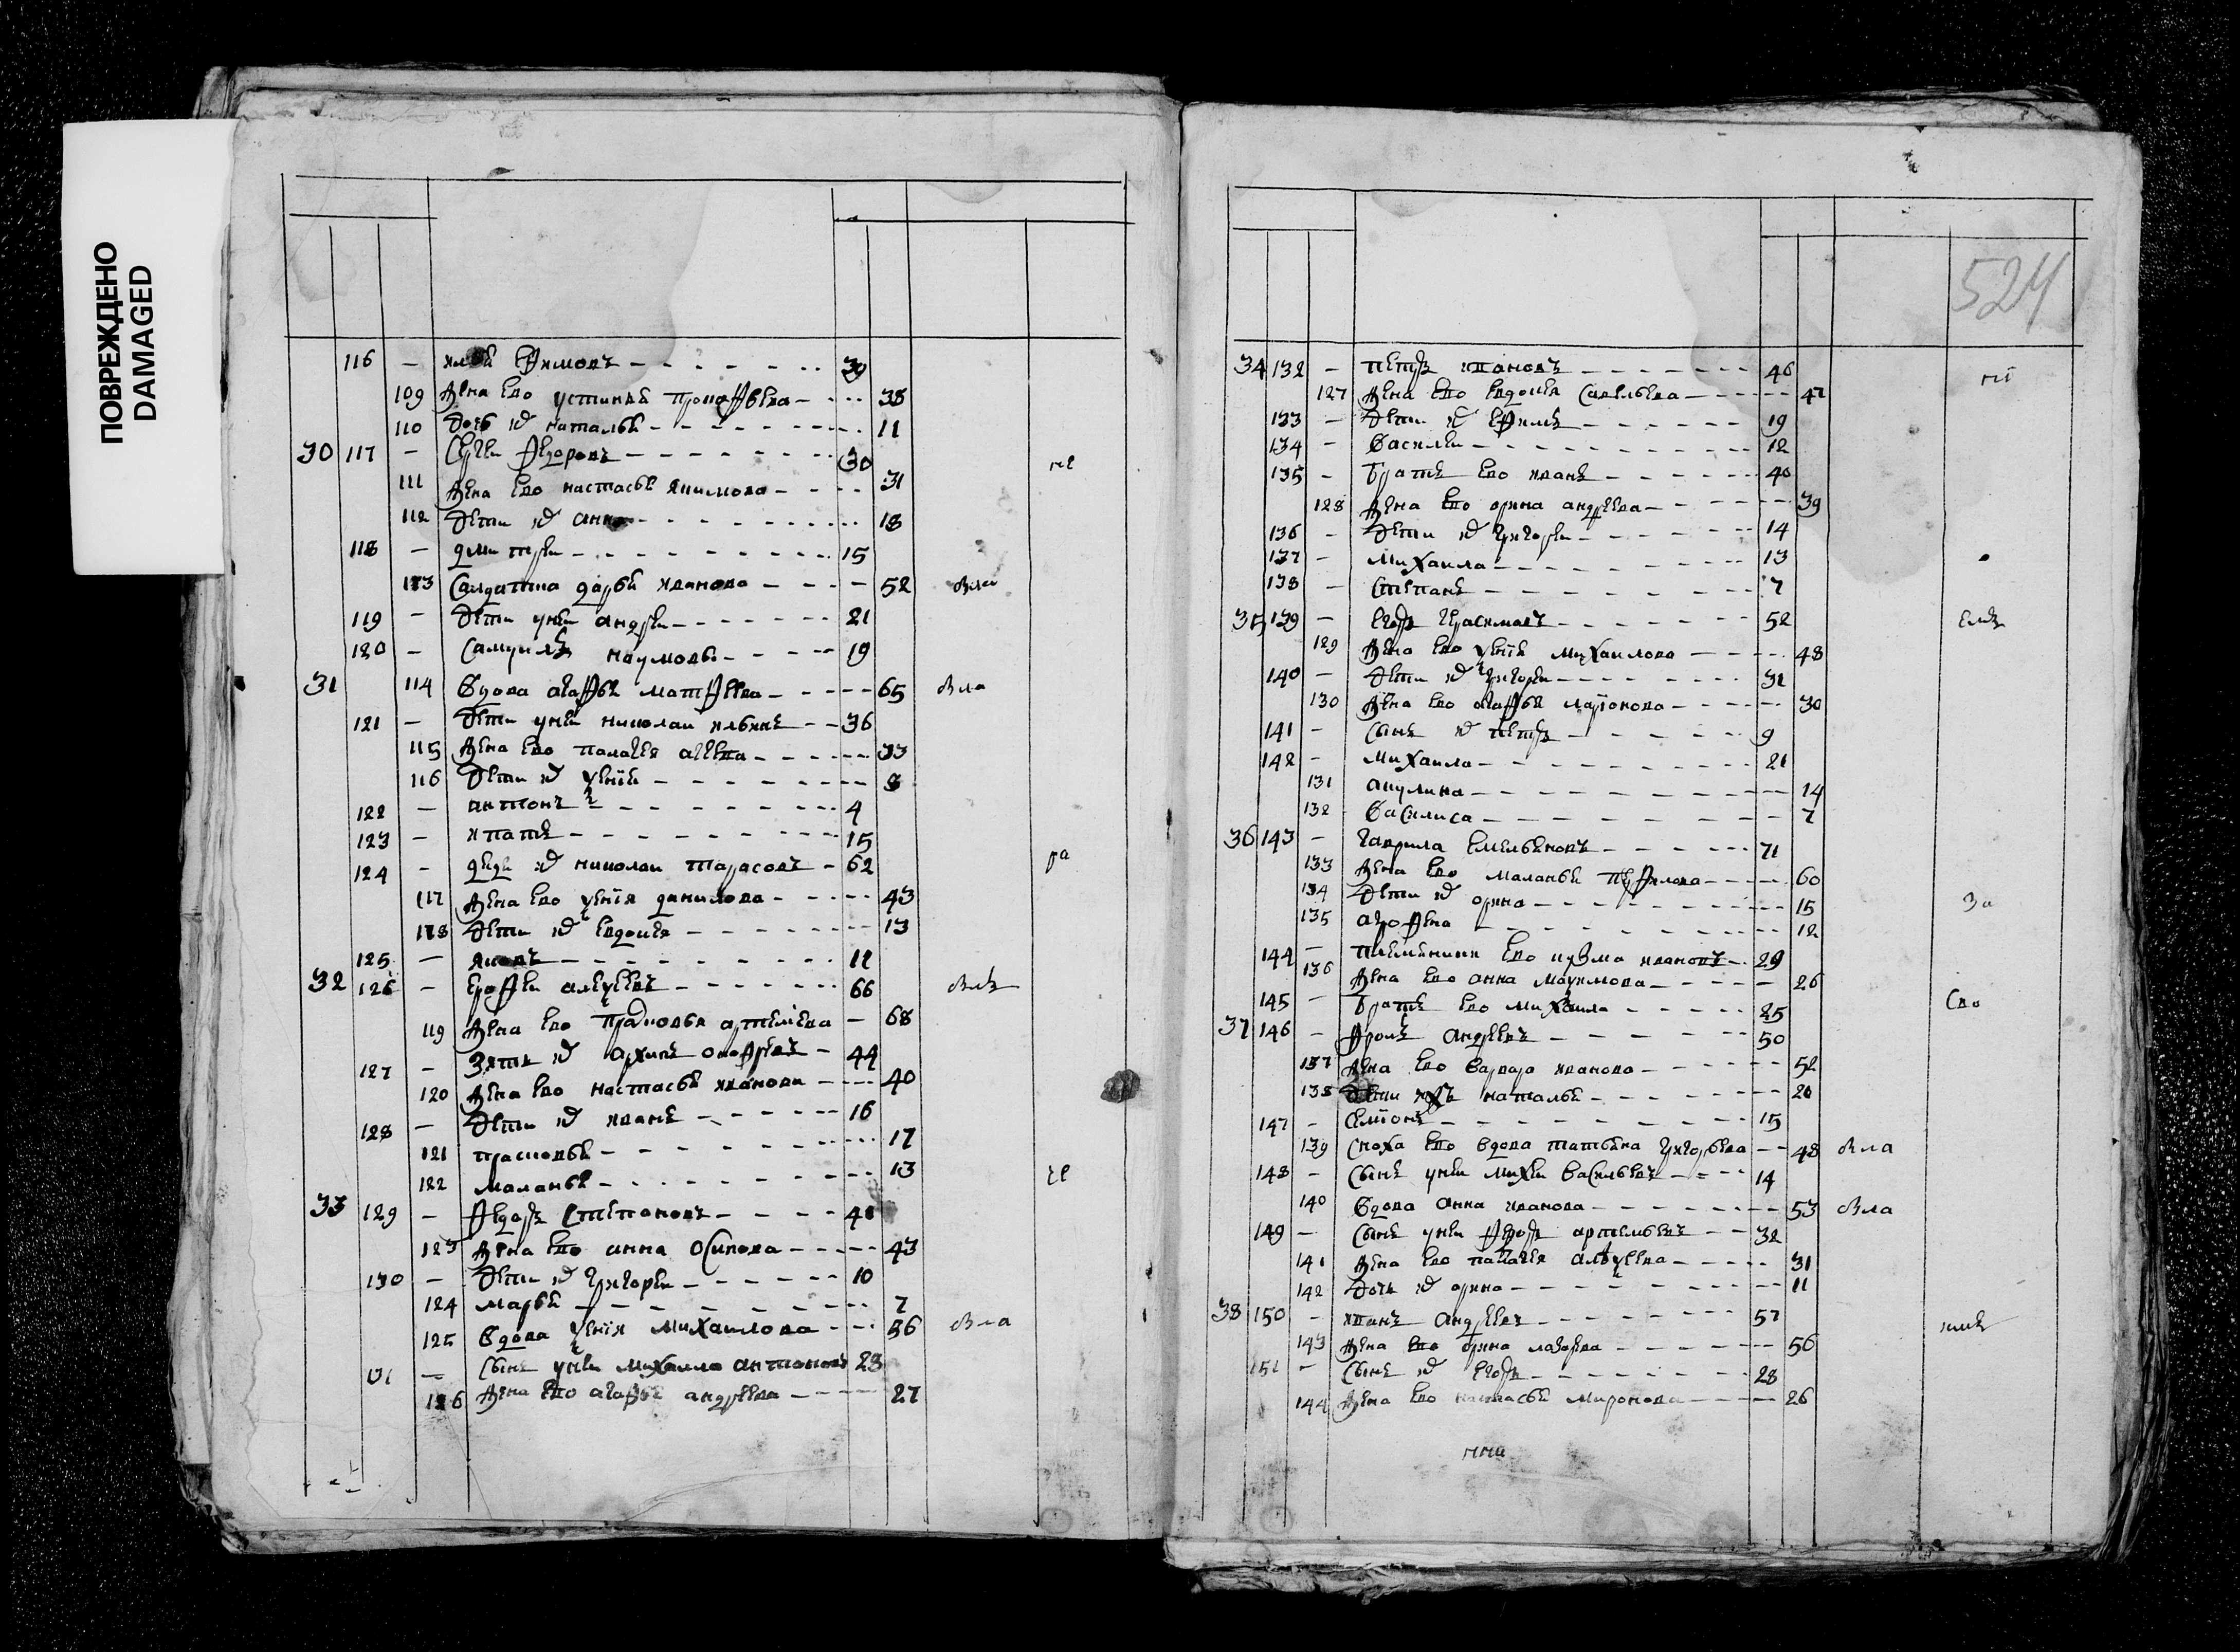 ПОВРЕЖДЕНО
DAMAGED
116 — Ефимовъ 30
109 жена ево устинья прокофьева 38
110 дочь их наталья 11
30 117 — Сергеи федоровъ 30
111 жена ево настасья якимова 31
112 дети их анна 18
118 — дмитреи 15
113 Салдатка дарья иванова 52 вла
119 — дети у неи андреи 21
120 — Самуилъ наумовы 19
31 114 вдова агафья матфеева 65 вла
121 — дети у неи николаи ильинъ 36
115 жена ево палагея агеева 33
116 дети их ксѣния 8
122 — антонъ 4
123 — ипатъ 15
124 — дядя их николаи тарасовъ 62
117 жена ево ксѣния данилова 43
118 дети их евдокея 13
125 — яковъ 11
32 126 — ерофеи алексѣевъ 66
119 жена ево прасковья артемиева 68
127 — зять их архипъ 44
120 жена ево настасья иванова 40
128 — дети их иванъ 16
121 прасковья 17
122 маланья 13
33 129 — федоръ степановъ
123 жена ево анна осипова 43
130 — дети их григореи 10
124 марья 7
125 вдова ксѣния михаилова 56 вла
— сынъ у неи михаила антоновъ 28
126 жена ево агафья андреева 27
524
34 132 — петръ ивановъ 46
127 жена ево евдокея савельева 47
133 — дети их ефимъ 19
134 — василеи 12
135 — братъ ево иванъ 40
128 жена ево орина андреева 39
136 — дети их григореи 14
137 — михаила 13
138 — степанъ 7
35 139 — егоръ герасимовъ 52
129 жена ево ксѣния михаилова 48
140 — дети их григореи 31
130 жена ево агафья ларионова 30
141 — сынъ их петръ 9
142 — михаила 21
131 акулина 14
132 василиса 7
36 143 — гаврила емельяновъ 71
133 жена ево маланья перфилова 60
134 дети их орина 15
135 агрофена 12
144 — племянникъ ево кузма ивановъ 29
136 жена ево анна максимова 26
145 — братъ ево михаила 25
37 146 — фролъ андреевъ 50
137 жена ево варвара иванова 52
138 дети ихъ наталья 20
147 — семионъ 15
139 сноха ево вдова татьяна григорьева 48 вла
148 — сынъ у неи михеи васильевъ 14
140 вдова анна иванова 53 вла
149 — сынъ у неи федоръ артемьевъ 32
141 жена ево палагея алексѣева 31
142 дочь их орина 11
38 150 — иванъ андреевъ 57
143 жена ево орина лазарева 56
151 — сынъ их егоръ 28
144 жена ево настасья миронова 26